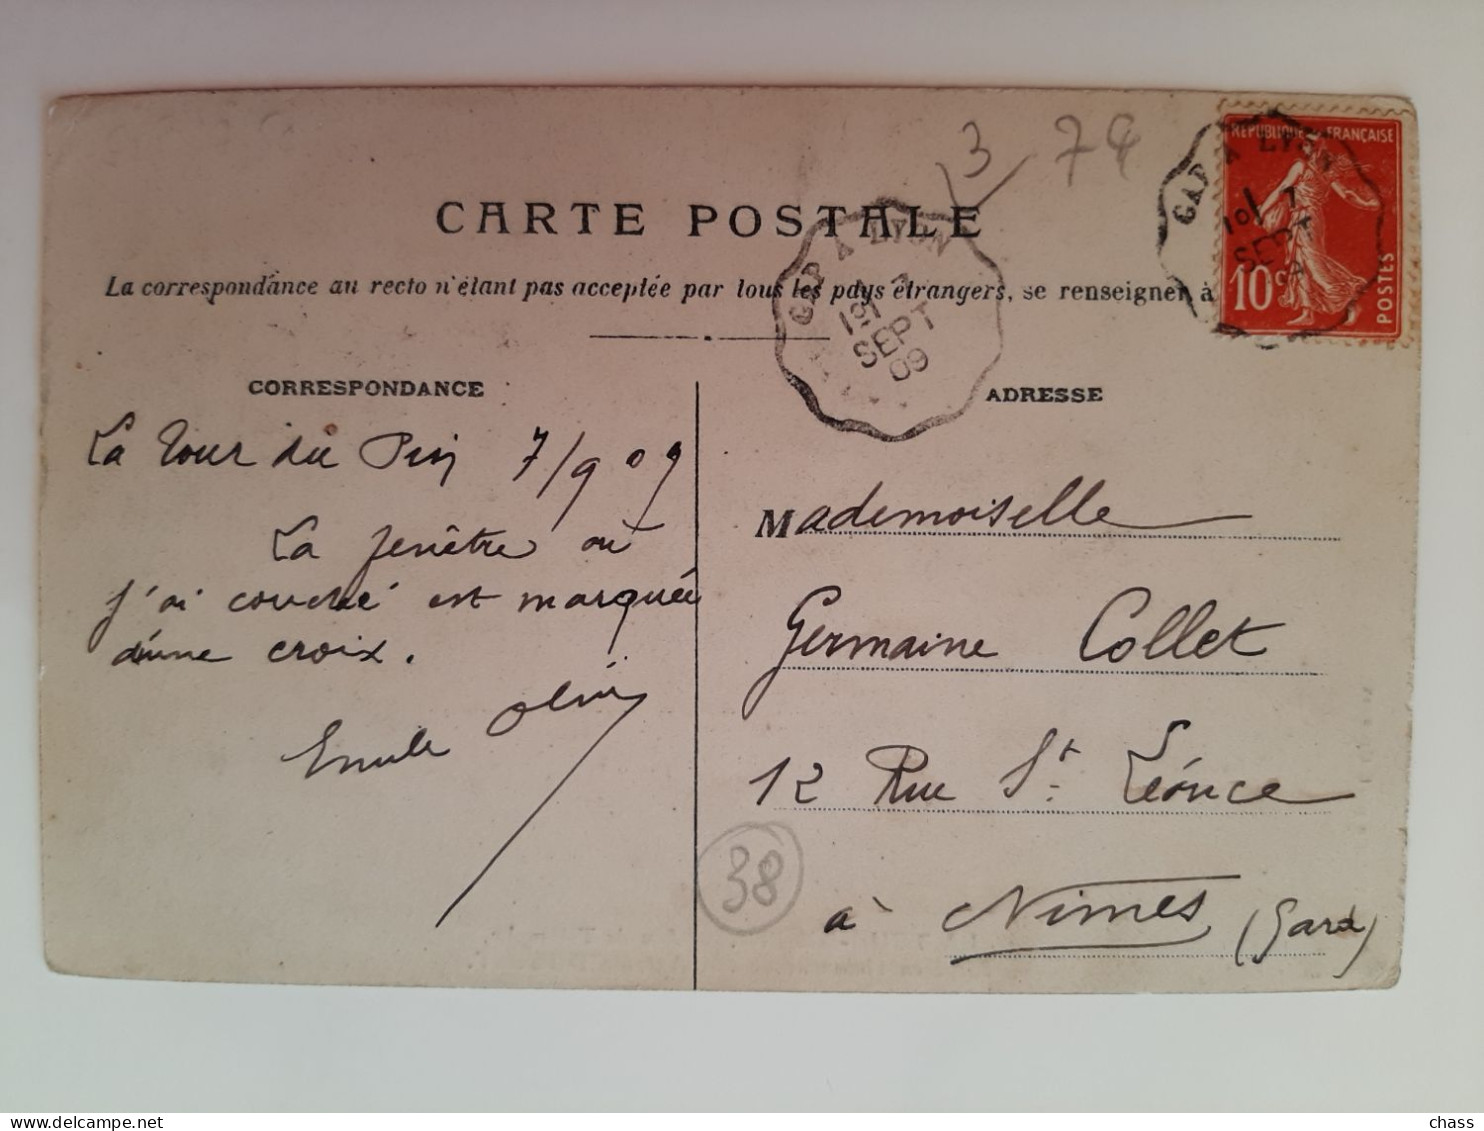 3 74
CARTE POSTALE
La correspondance au recto n'étant pas acceptée par tous les pays étrangers, se renseigner à
RÉPUBLIQUE FRANÇAISE
10c POSTES
GAP A LYON
SEPT
GAP A LYON
7
SEPT
09
CORRESPONDANCE
La Tour du Pin 7/9 09
La fenêtre où
j'ai couché est marquée
d'une croix.
Emile
ADRESSE
Mademoiselle
Germaine Collet
12 Rue St. Léonce
à Nimes (Gard)
38
www.delcampe.net
chass